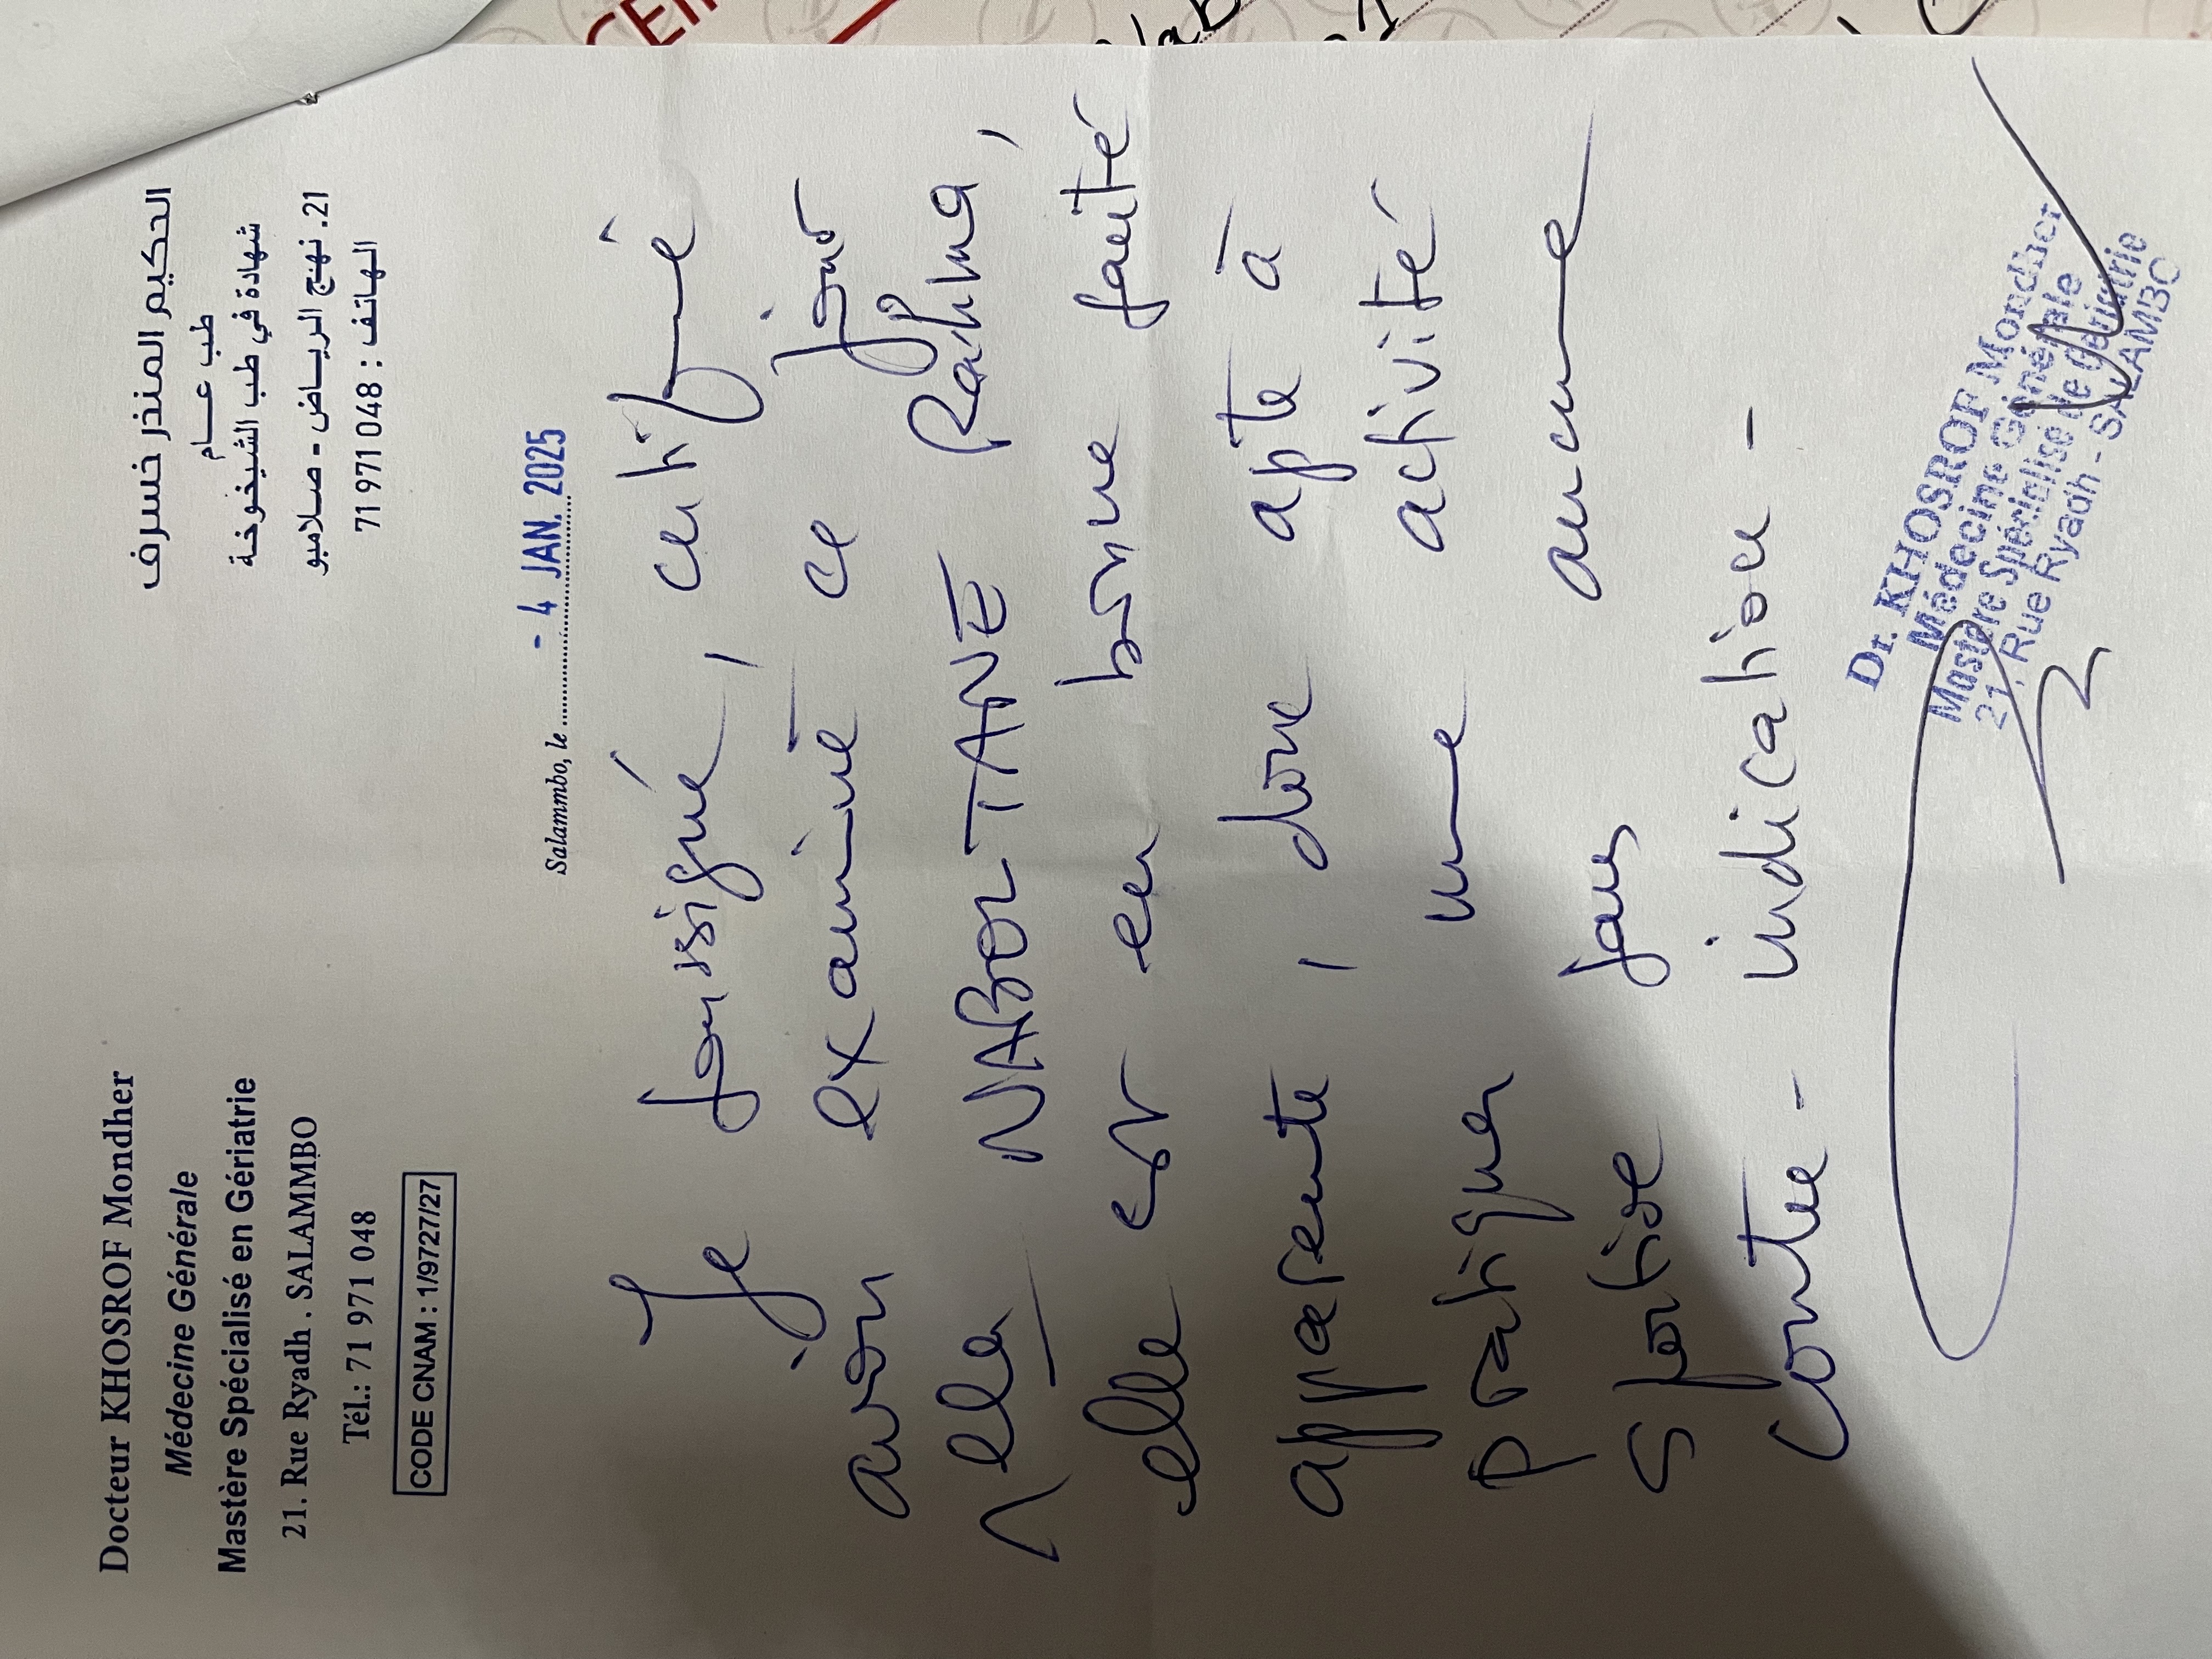 Docteur KHOSROF Mondher
Médecine Générale
Mastère Spécialisé en Gériatrie
21. Rue Ryadh . SALAMMBO
Tél.: 71 971 048
CODE CNAM : 1/9727/27
الحكيم المنذر خسرف
طب عـــام
شهادة في طب الشيخوخة
21. نهج الريـاض - صلامبو
الهاتف : 048 971 71
Salammbo, le - 4 JAN. 2025
Je soussigné, certifié
avoir examiné ce jour
Melle NABOLTANE Rahma,
elle est en bonne santé
apparente, donc apte à
pratiquer une activité
sportive sans aucune
contre-indication-
Dr. KHOSROF Mondher
Médecine Générale
Mastère Spécialisé de Gériatrie
21, Rue Ryadh - SALAMBO